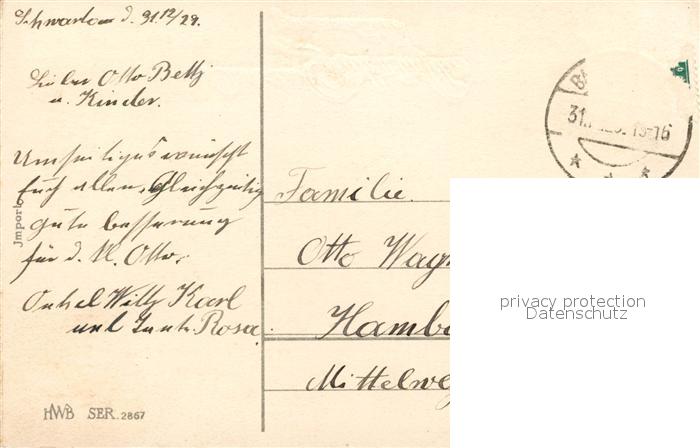 Schwartau d. 31.12/29.
Lieber Otto Betty
u. Kinder.
Umseitiges wünscht
Euch allen, Gleichzeitig
gute besserung
für d. Kl. Otto.
Onkel Willy Karl
und Tante Rosa.
Import
HWB SER. 2867
BA
31. 29. 15-16
Familie
Otto Wagn
Hambu
Mittelweg
privacy protection
Datenschutz